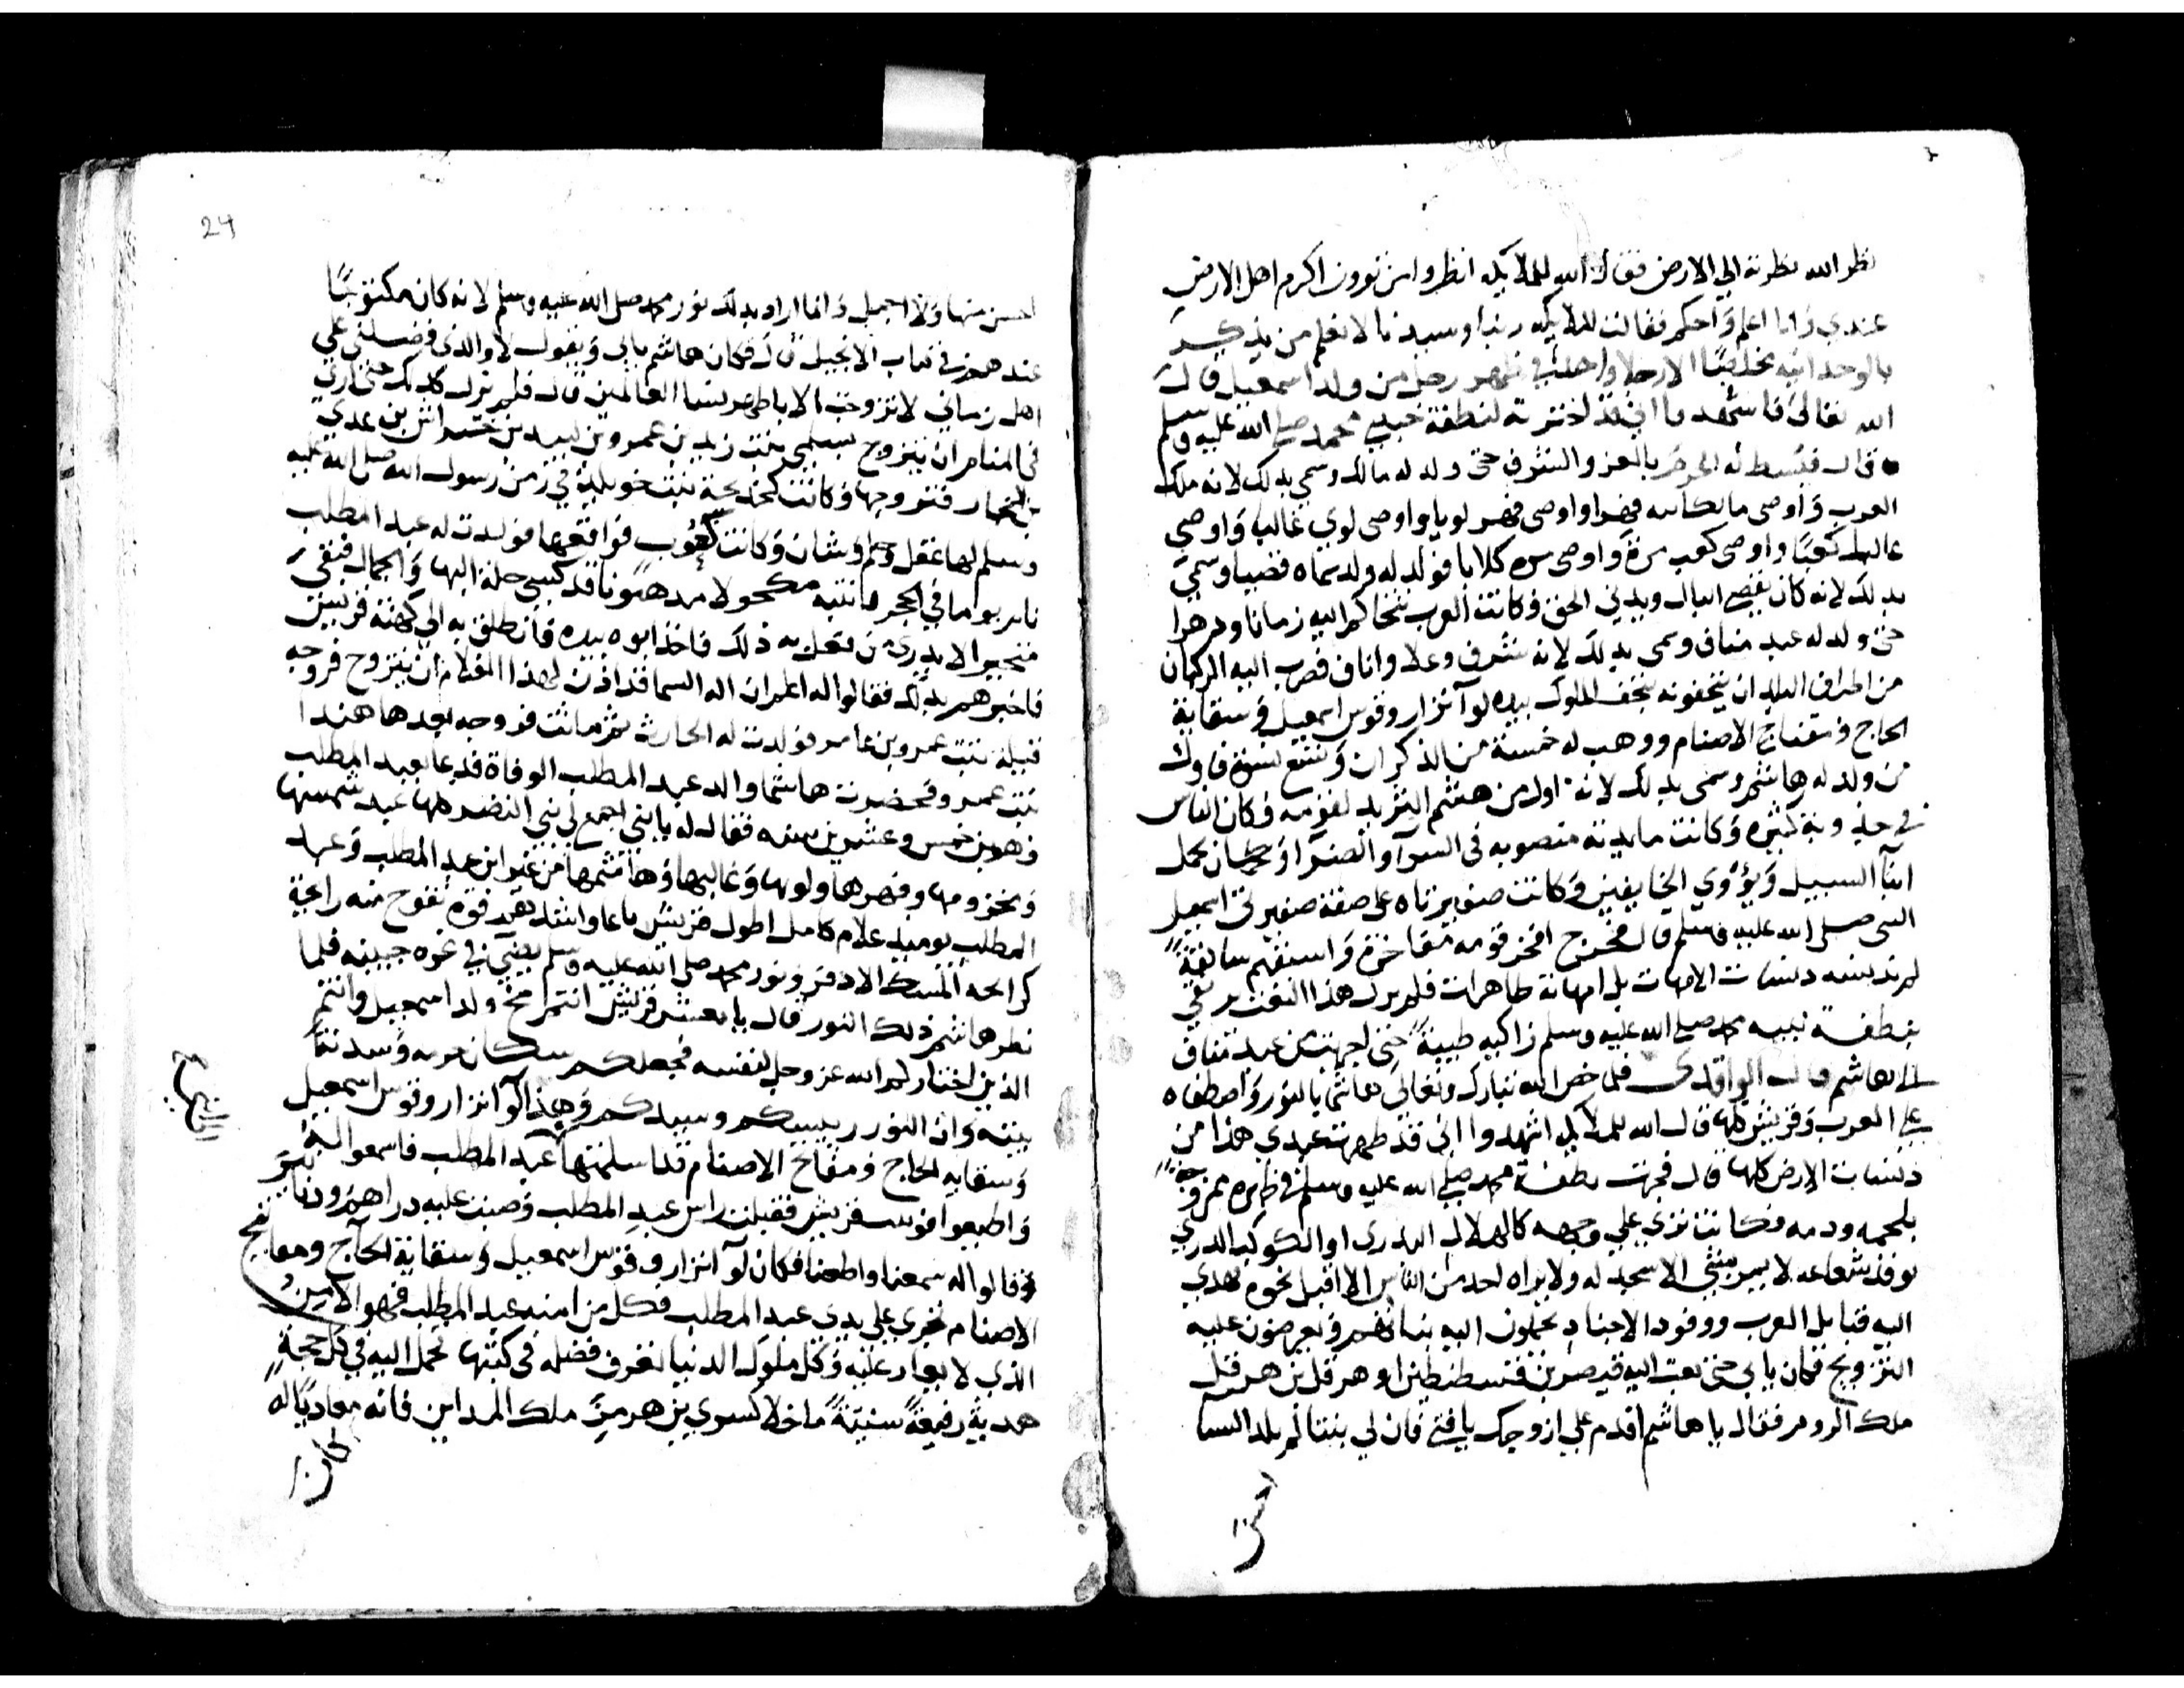 نظر الله نظرته الي الارض فقال الله للملايكه انظروا من ترون اكرم اهل الارض
عندي وانا اعلم واحكم فقالت الملايكه ربنا وسيدنا لا نعلم من يذكر
بالوحدانيه مخلصا الا رجلا واحدا في ظهر رجل من ولد اسمعيل قال
الله تعالي فاشهدوا اني قد اخترته لنطفة حبيبي محمد صلي الله عليه وسلم
قال فبسط له الحرم بالعز والشرف حتي ولد له مالك وسمي بذلك لانه ملك
العرب واوصي مالك ابنه فهرا واوصي فهر لويا واوصي لوي غالبا واوصي
غالب كعبا واوصي كعب مرة واوصي مره كلابا فولد له ولد سماه قصيا وسمي
بذلك لانه كان يقصي الباطل ويدني الحق وكانت العرب تتحاكم اليه زمانا ودهرا
حتي ولد له عبد مناف وسمي بذلك لانه شرف وعلا واناف فضرب اليه الركبان
من اطراف البلدان يتحفونه بتحف الملوك بيده لوآ نزار وقوس اسمعيل وسقاية
الحاج ومفتاح الاصنام ووهب له خمسة من الذكران وتسع نسوة فاول
من ولد له هاشم وسمي بذلك لانه اول من هشم الثريد لقومه وكان الناس
في جدوبة كثيره وكانت مايدته منصوبه في السرآ والضرآ وكان يحمل
ابنآ السبيل ويؤوي الخايفين وكانت ضفيرتاه علي صفة ضفيرتي اسمعيل
النبي صلي الله عليه وسلم قال فخرج افخر قومه مفاخرة واسبقهم سابقة
لم تدنسه دنسات الامهات بل امهاته طاهرات فلم يزل هذا النعت يرتقي
بنطفة نبيه محمد صلي الله عليه وسلم زاكيه طيبة حتي اجهت من عبد مناف
الي هاشم قال الواقدي فلما خص الله تبارك وتعالي هاشما بالنور واصطفاه
علي العرب وقريش كلها قال الله للملايكه اشهدوا اني قد طهرت عبدي هذا من
دنسات الارض كلها قال فجرت نطفة محمد صلي الله عليه وسلم في ظهره ممزوجة
بلحمه ودمه وكانت تري علي وجهه كالهلال البدري او الكوكب الدري
توقد شعاعه لا يمر بشي الا سجد له ولا يراه احد من الناس الا اقبل نحوه تهدي
اليه قبايل العرب ووفود الاجناد يحملون اليه بناتهم ويعرضون عليه
التزويج فكان يابي حتي بعث اليه قيصر بن قسطنطين او هرقل بن هرقل
ملك الروم فقال يا هاشم اقدم علي ازوجك يا فتي فان لي بنتا لم تلد النسا
احسن
24
احسن منها ولا اجمل وانما اراد بذلك نور محمد صلي الله عليه وسلم لانه كان مكتوبا
عندهم في كتاب الانجيل قال فكان هاشم يابي ويقول لا والذي فضلني علي
اهل زماني لا تزوجت الا باطهر نسا العالمين قال فلم يزل كذلك حتي اري
في المنام ان يتزوج سلمي بنت زيد بن عمرو بن لبيد بن خداش بن عدي
بن النجار فتزوجها وكانت كخديجة بنت خويلد في زمن رسول الله صلي الله عليه
وسلم لها عقل وحلم وشان وكانت فواقعها فولدت له عبد المطلب
نام يوما في الحجر فانتبه مكحولا مدهونا قد كسي حلة البها والجمال فبقي
متحيرا لا يدري من فعل به ذلك فاخذ ابوه بيده فانطلق به الي كهنة قريش
فاخبرهم بذلك فقالوا له اعلم ان اله السما قد اذن لهذا الغلام ان يتزوج فزوجه
قبيلة بنت عمرو بن عامر فولدت له الحارث ثم ماتت فزوجه بعدها هندا
بنت عمرو وحضرت هاشما والد عبد المطلب الوفاة فدعا بعبد المطلب
وهو بن خمس وعشرين سنه فقال له يا بني اجمع لي بني النضر كلها عبد شمسها
ومخزومها وفهرها ولويها وغالبها وهاشمها من غير ابن عبد المطلب وعبد
المطلب يوميذ غلام كامل اطول قريش باعا واشدهم قوة تفوح منه رايحة
كرايحه المسك الاذفر ونور محمد صلي الله عليه وسلم يضي في غرة جبينه فلما
نظر هاشم ذلك النور قال يا معشر قريش انتم مخ ولد اسمعيل وانتم
الذين اختاركم الله عز وجل لنفسه فجعلكم سكان حرمه وسدنة
بيته وان النور رييسكم وسيدكم وهذا لوآ نزار وقوس اسمعيل
وسقايه الحاج ومفاتح الاصنام قد اسلمتها عبد المطلب فاسمعوا اليه
واطيعوا فوثبت قريش فقبلت راس عبد المطلب وصبت عليه دراهم ودنانير
وقالوا له سمعنا واطعنا فكان لوآ نزار وقوس اسمعيل وسقاية الحاج ومفاتح
الاصنام تجري علي يدي عبد المطلب فكل من امنه عبد المطلب فهو الامين
الذي لا يعار عليه وكل ملوك الدنيا تعرف فضله في كتبها تحمل اليه في كل حجة
هدية رفيعة سنية ما خلا كسري بن هرمز ملك المداين فانه معاديا له